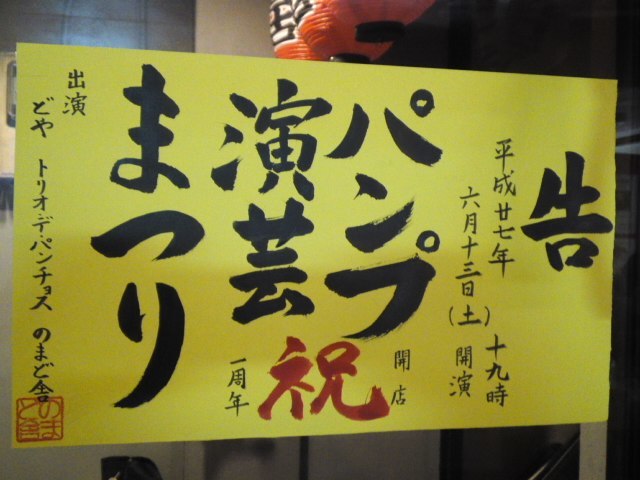 告
平成廿七年
六月十三日(土)十九時
開演
パンプ
演芸
まつり
祝
開店
一周年
出演
どや トリオ・デ・パンチョス のまど舎
のま
ど舎